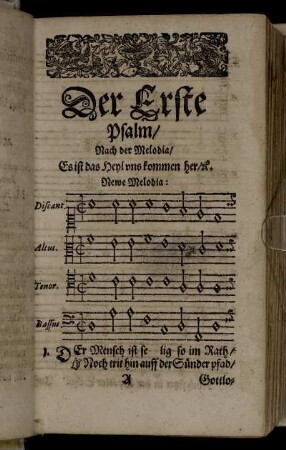 Der Erste
Psalm/
Nach der Melodia/
Es ist das Heyl vns kommen her/ꝛc.
Newe Melodia:
Discant.
Altus.
Tenor.
Bassus.
1. DEr Mensch ist se- lig so im Rath/
Noch trit hin auff der Sünder pfad/
A Gottlo-